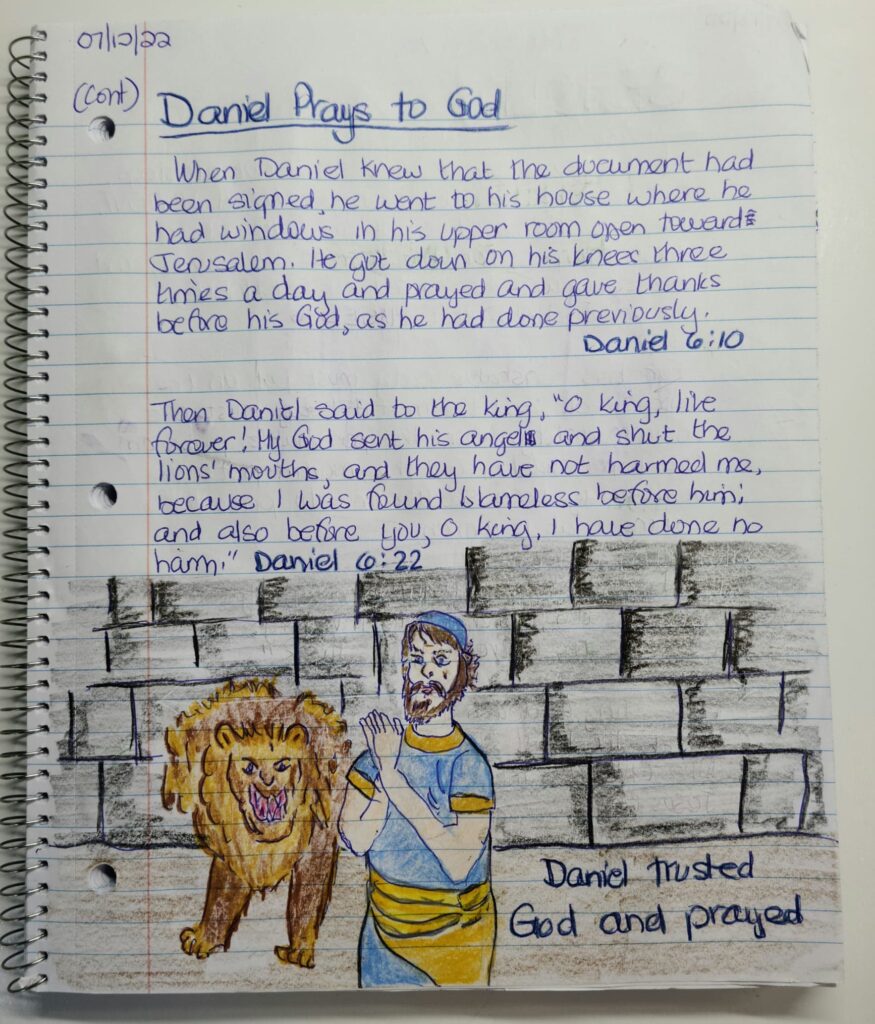 07/12/22
(cont) Daniel Prays to God
When Daniel knew that the document had
been signed, he went to his house where he
had windows in his upper room open towards
Jerusalem. He got down on his knees three
times a day and prayed and gave thanks
before his God, as he had done previously.
Daniel 6:10
Then Daniel said to the king, "O king, live
forever! My God sent his angel and shut the
lions' mouths, and they have not harmed me,
because I was found blameless before him;
and also before you, O king, I have done no
harm." Daniel 6:22
Daniel trusted
God and prayed